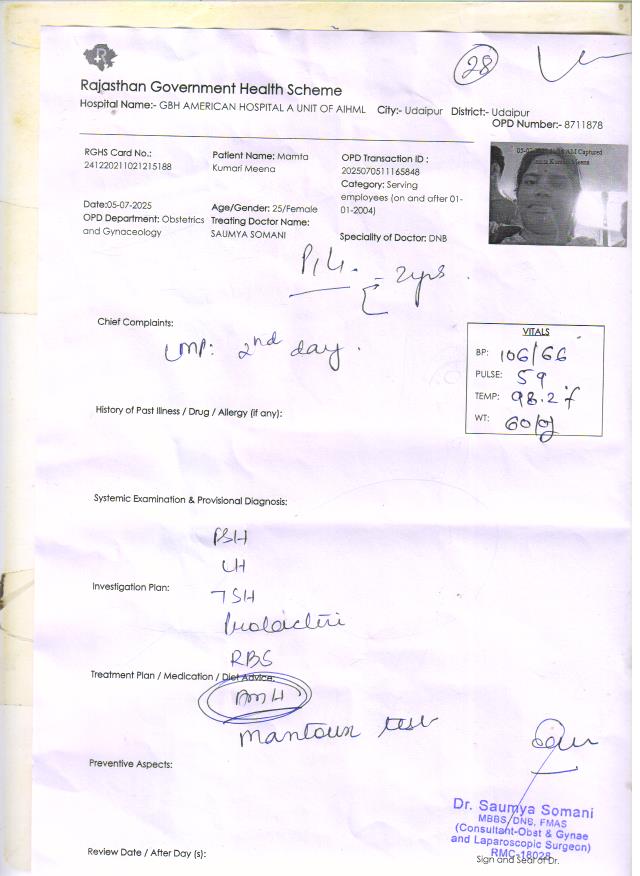 28
Rajasthan Government Health Scheme
Hospital Name:- GBH AMERICAN HOSPITAL A UNIT OF AIHML City:- Udaipur District:- Udaipur
OPD Number:- 8711878
RGHS Card No.: 241220211021215188
Patient Name: Mamta Kumari Meena
OPD Transaction ID : 2025070511165848
Category: Serving employees (on and after 01-01-2004)
Date:05-07-2025
OPD Department: Obstetrics and Gynaceology
Age/Gender: 25/Female
Treating Doctor Name: SAUMYA SOMANI
Speciality of Doctor: DNB
Captured
Kumari Meena
2yrs
Chief Complaints:
LMP: 2nd day.
VITALS
BP: 106/66
PULSE: 59
TEMP: 98.2 f
WT: 60
History of Past Illness / Drug / Allergy (if any):
Systemic Examination & Provisional Diagnosis:
FSH
LH
Investigation Plan:
TSH
Prolactin
RBS
Treatment Plan / Medication / Diet Advice:
AMH
Mantoux test
Preventive Aspects:
Dr. Saumya Somani
MBBS, DNB, FMAS
(Consultant-Obst & Gynae
and Laparoscopic Surgeon)
RMC-18028
Review Date / After Day (s):
Sign and Seal of Dr.